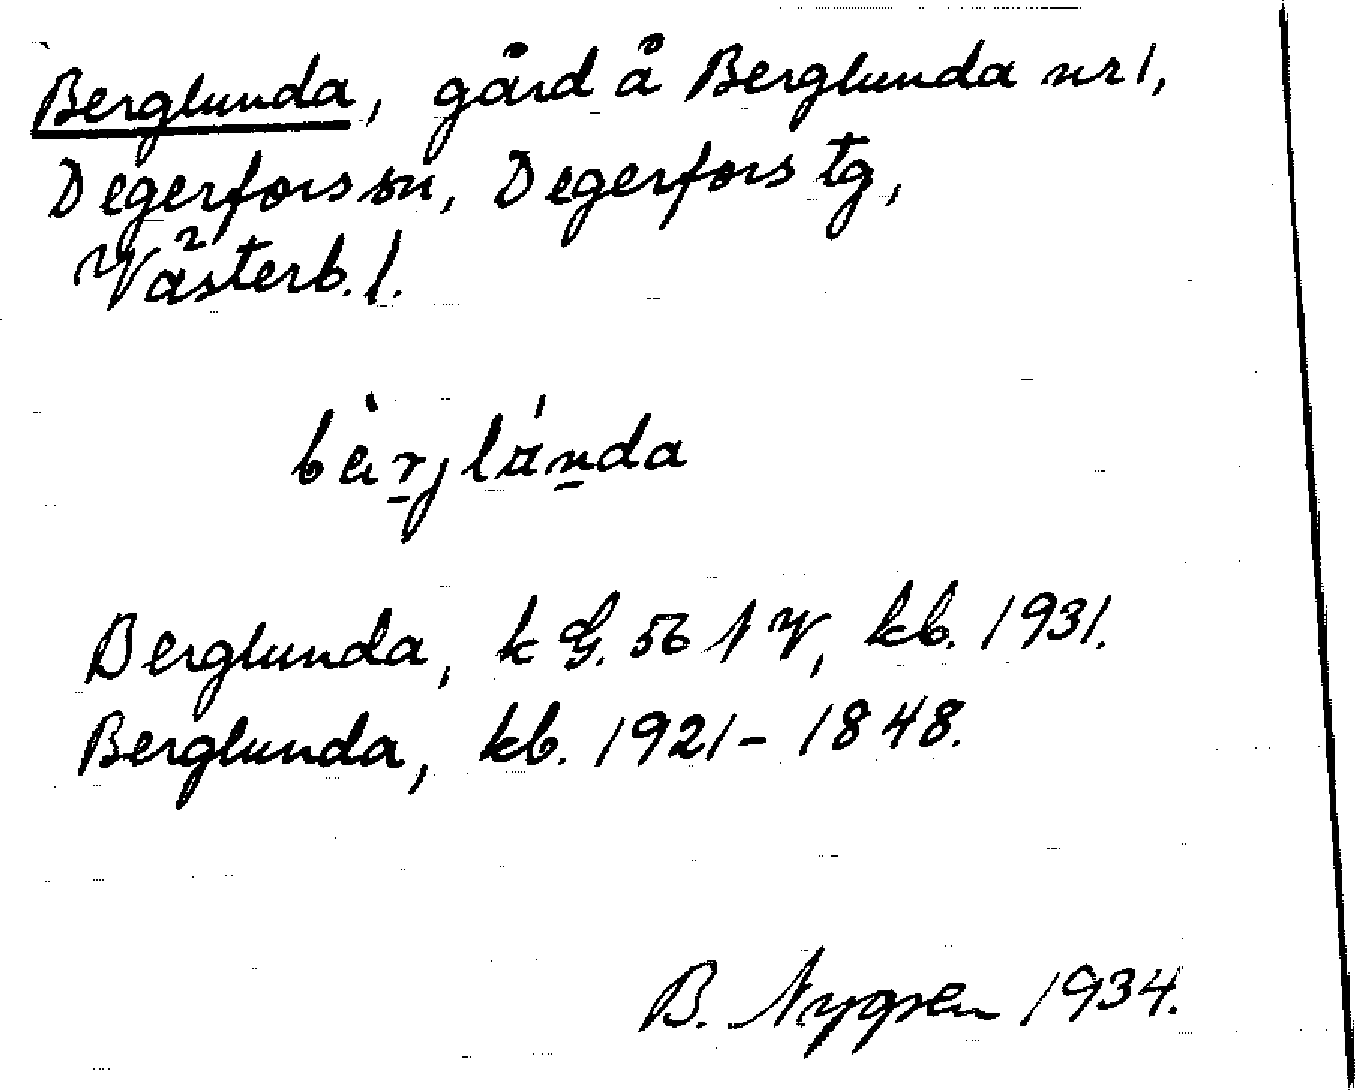 Berglunda, gård å Berglunda nr 1,
Degerfors sn, Degerfors tg,
Västerb. l.
Berglunda, k G. 56 NV, kb. 1931.
Berglunda, kb. 1921 - 1848.
B. Nygren 1934.